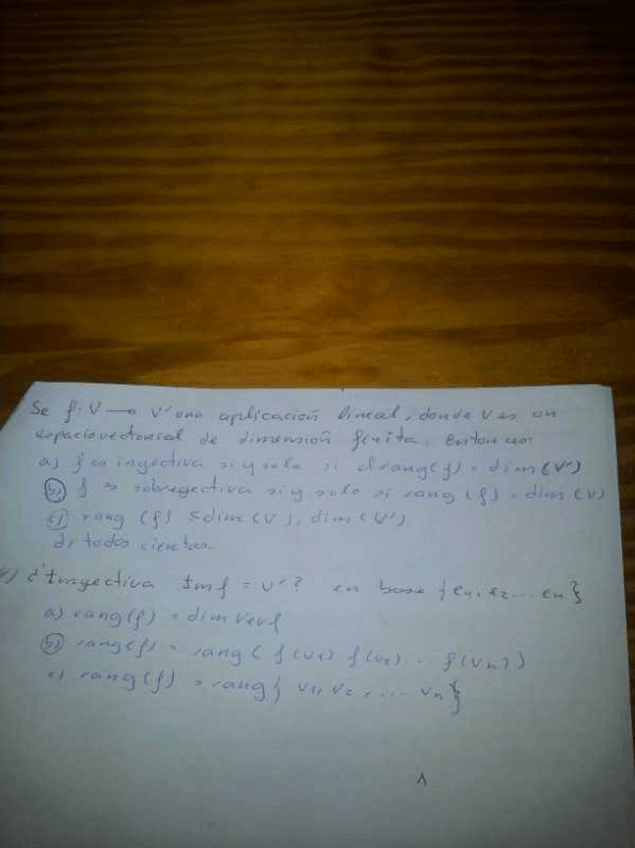 Se f: V → V' una aplicación lineal, donde V es un
espacio vectorial de dimensión finita. Entonces:
a) f es ingectiva si y solo si el rang(f) = dim(V')
b) f es sobregectiva si y solo si rang (f) = dim (V)
c) rang (f) ≤ dim (V), dim (V')
d) todas ciertas.
¿Imgectiva Imf = V'? en base {e1, e2 ... en}
a) rang(f) = dim Kerf
b) rang(f) = rang( f(v1) f(v2) .. f(vn))
c) rang(f) = rang{ v1, v2, .... vn}